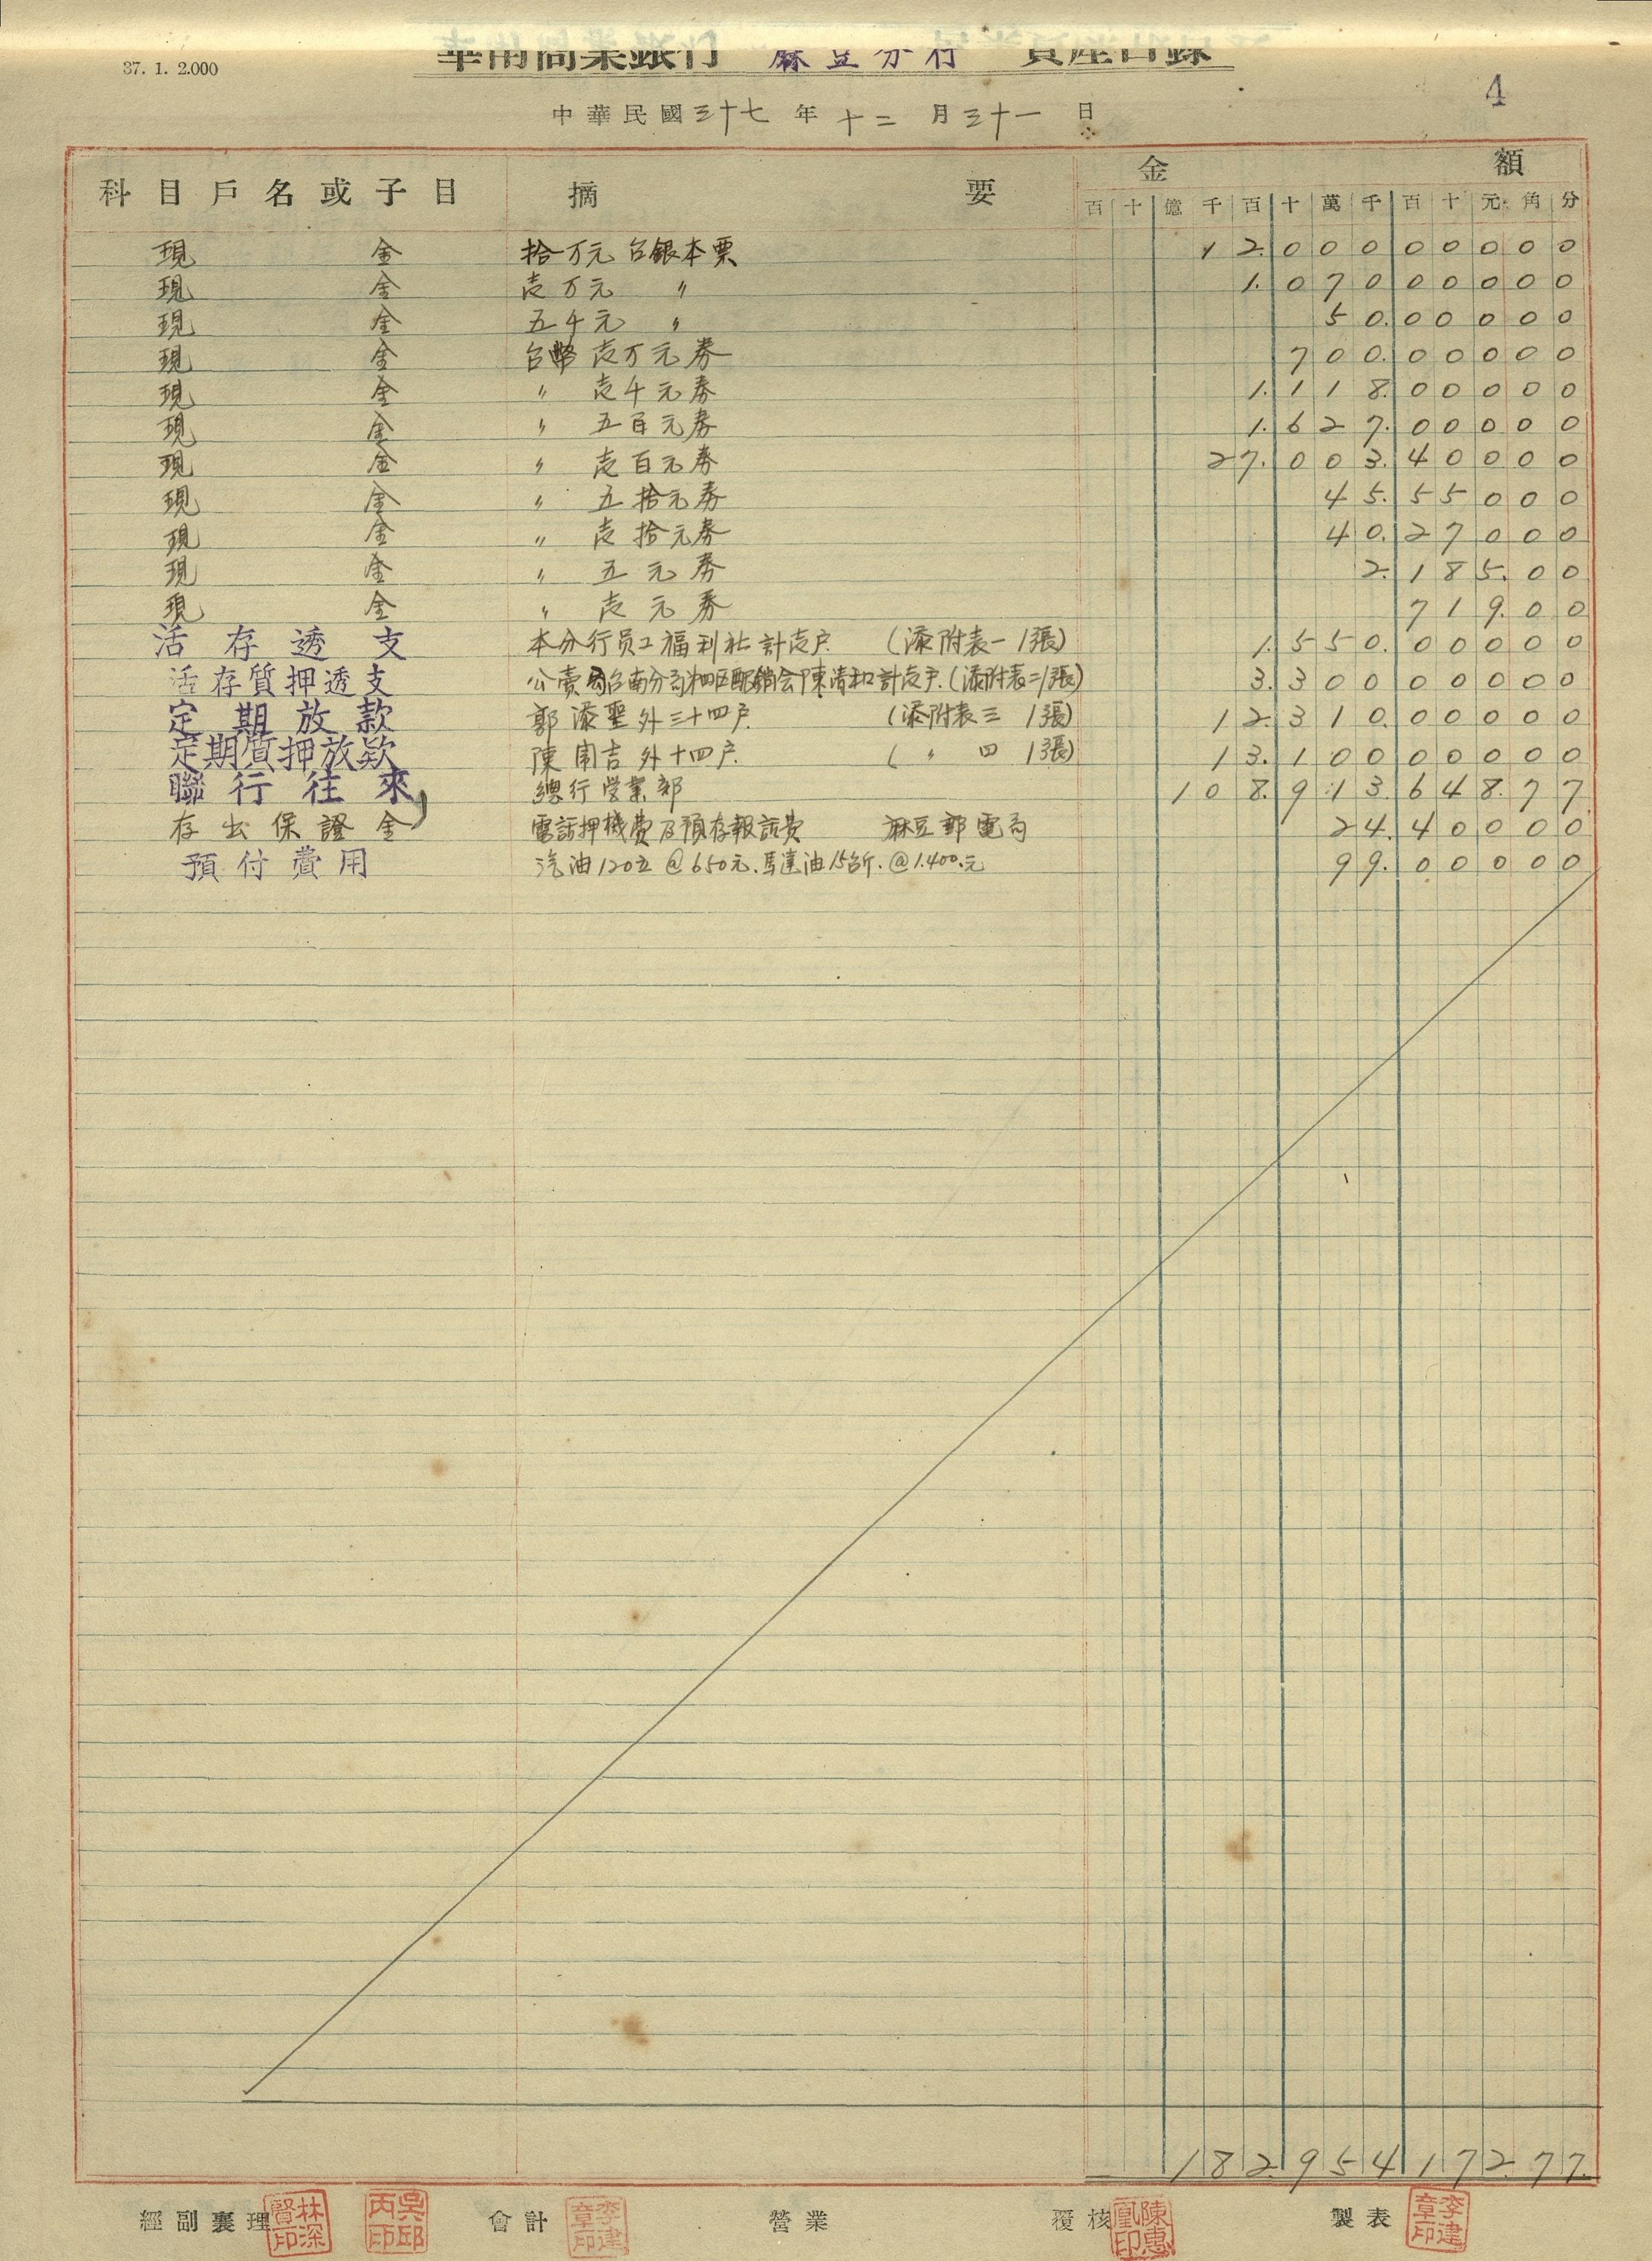 37. 1. 2.000
華南商業銀行 麻豆分行 資產目錄
4
中華民國三十七年十二月三十一日
科目戶名或子目 摘要 金額
百 十 億 千 百 十 萬 千 百 十 元 角 分
現金 拾万元 台銀本票 12.000 000 00
現金 壱万元 〃 1.070 000 00
現金 五千元 〃 50.000 00
現金 台幣 壱万元券 700.000 00
現金 〃 壱千元券 1.118.000 00
現金 〃 五百元券 1.627.000 00
現金 〃 壱百元券 27.003.400 00
現金 〃 五拾元券 45.550 00
現金 〃 壱拾元券 40.270 00
現金 〃 五元券 2.185.00
現金 〃 壱元券 719.00
活存透支 本分行员工福利社 計壱户 (添附表一 1張) 1.550.000 00
活存質押透支 公賣局台南分局 四区配銷会 陳清和 計壱户.(添附表二1張) 3.300 000 00
定期放款 郭添聖外三十四户. (添附表三 1張) 12.310.000 00
定期質押放欵 陳 吉外十四户. ( 〃 四 1張) 13.100 000 00
聯行往來 總行営業部 108.913.648.77
存出保證金 電話押機費及預存報話費 麻豆郵電局 24.400 00
預付費用 汽油120立 @650元.馬達油15台斤.@1.400.元 99.000 00
182.954 172.77.
經副襄理 林深賢印 吳邱丙印 會計 李建章印 營業 覆核 陳惠凰印 製表 李建章印